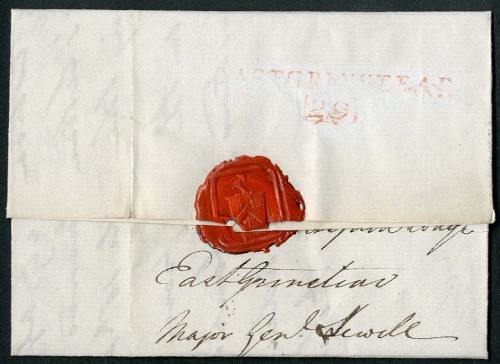 EAST GRINSTEAD
29
East Grinstead
Major Genl. Sewell